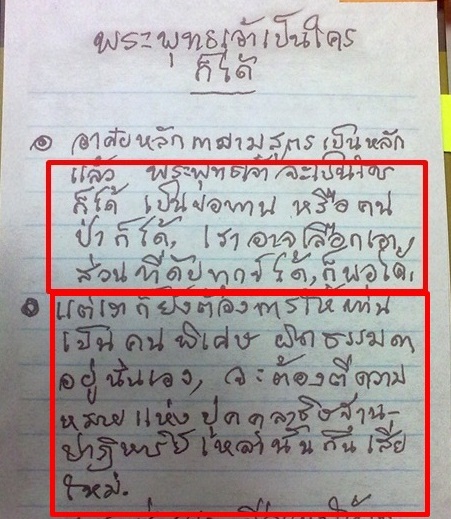 พระพุทธเจ้าเป็นใคร
ก็ได้
๏ อาศัยหลักกาลามสูตร เป็นหลัก
แล้ว พระพุทธเจ้า จะเป็นใคร
ก็ได้ เป็นขอทาน หรือ คน
ป่า ก็ได้, เราอาจเลือกเอา,
ส่วนที่ดับทุกข์ได้, ก็พอใจ.
๏ แต่เขาก็ยังต้องการให้ท่าน
เป็น คน พิเศษ ผิดธรรมดา
อยู่นั่นเอง, จะต้องตีความ
หมายแห่ง ปุคคลาธิษฐาน-
ปาฏิหาริย์ เหล่านั้น กันเสีย
ใหม่.